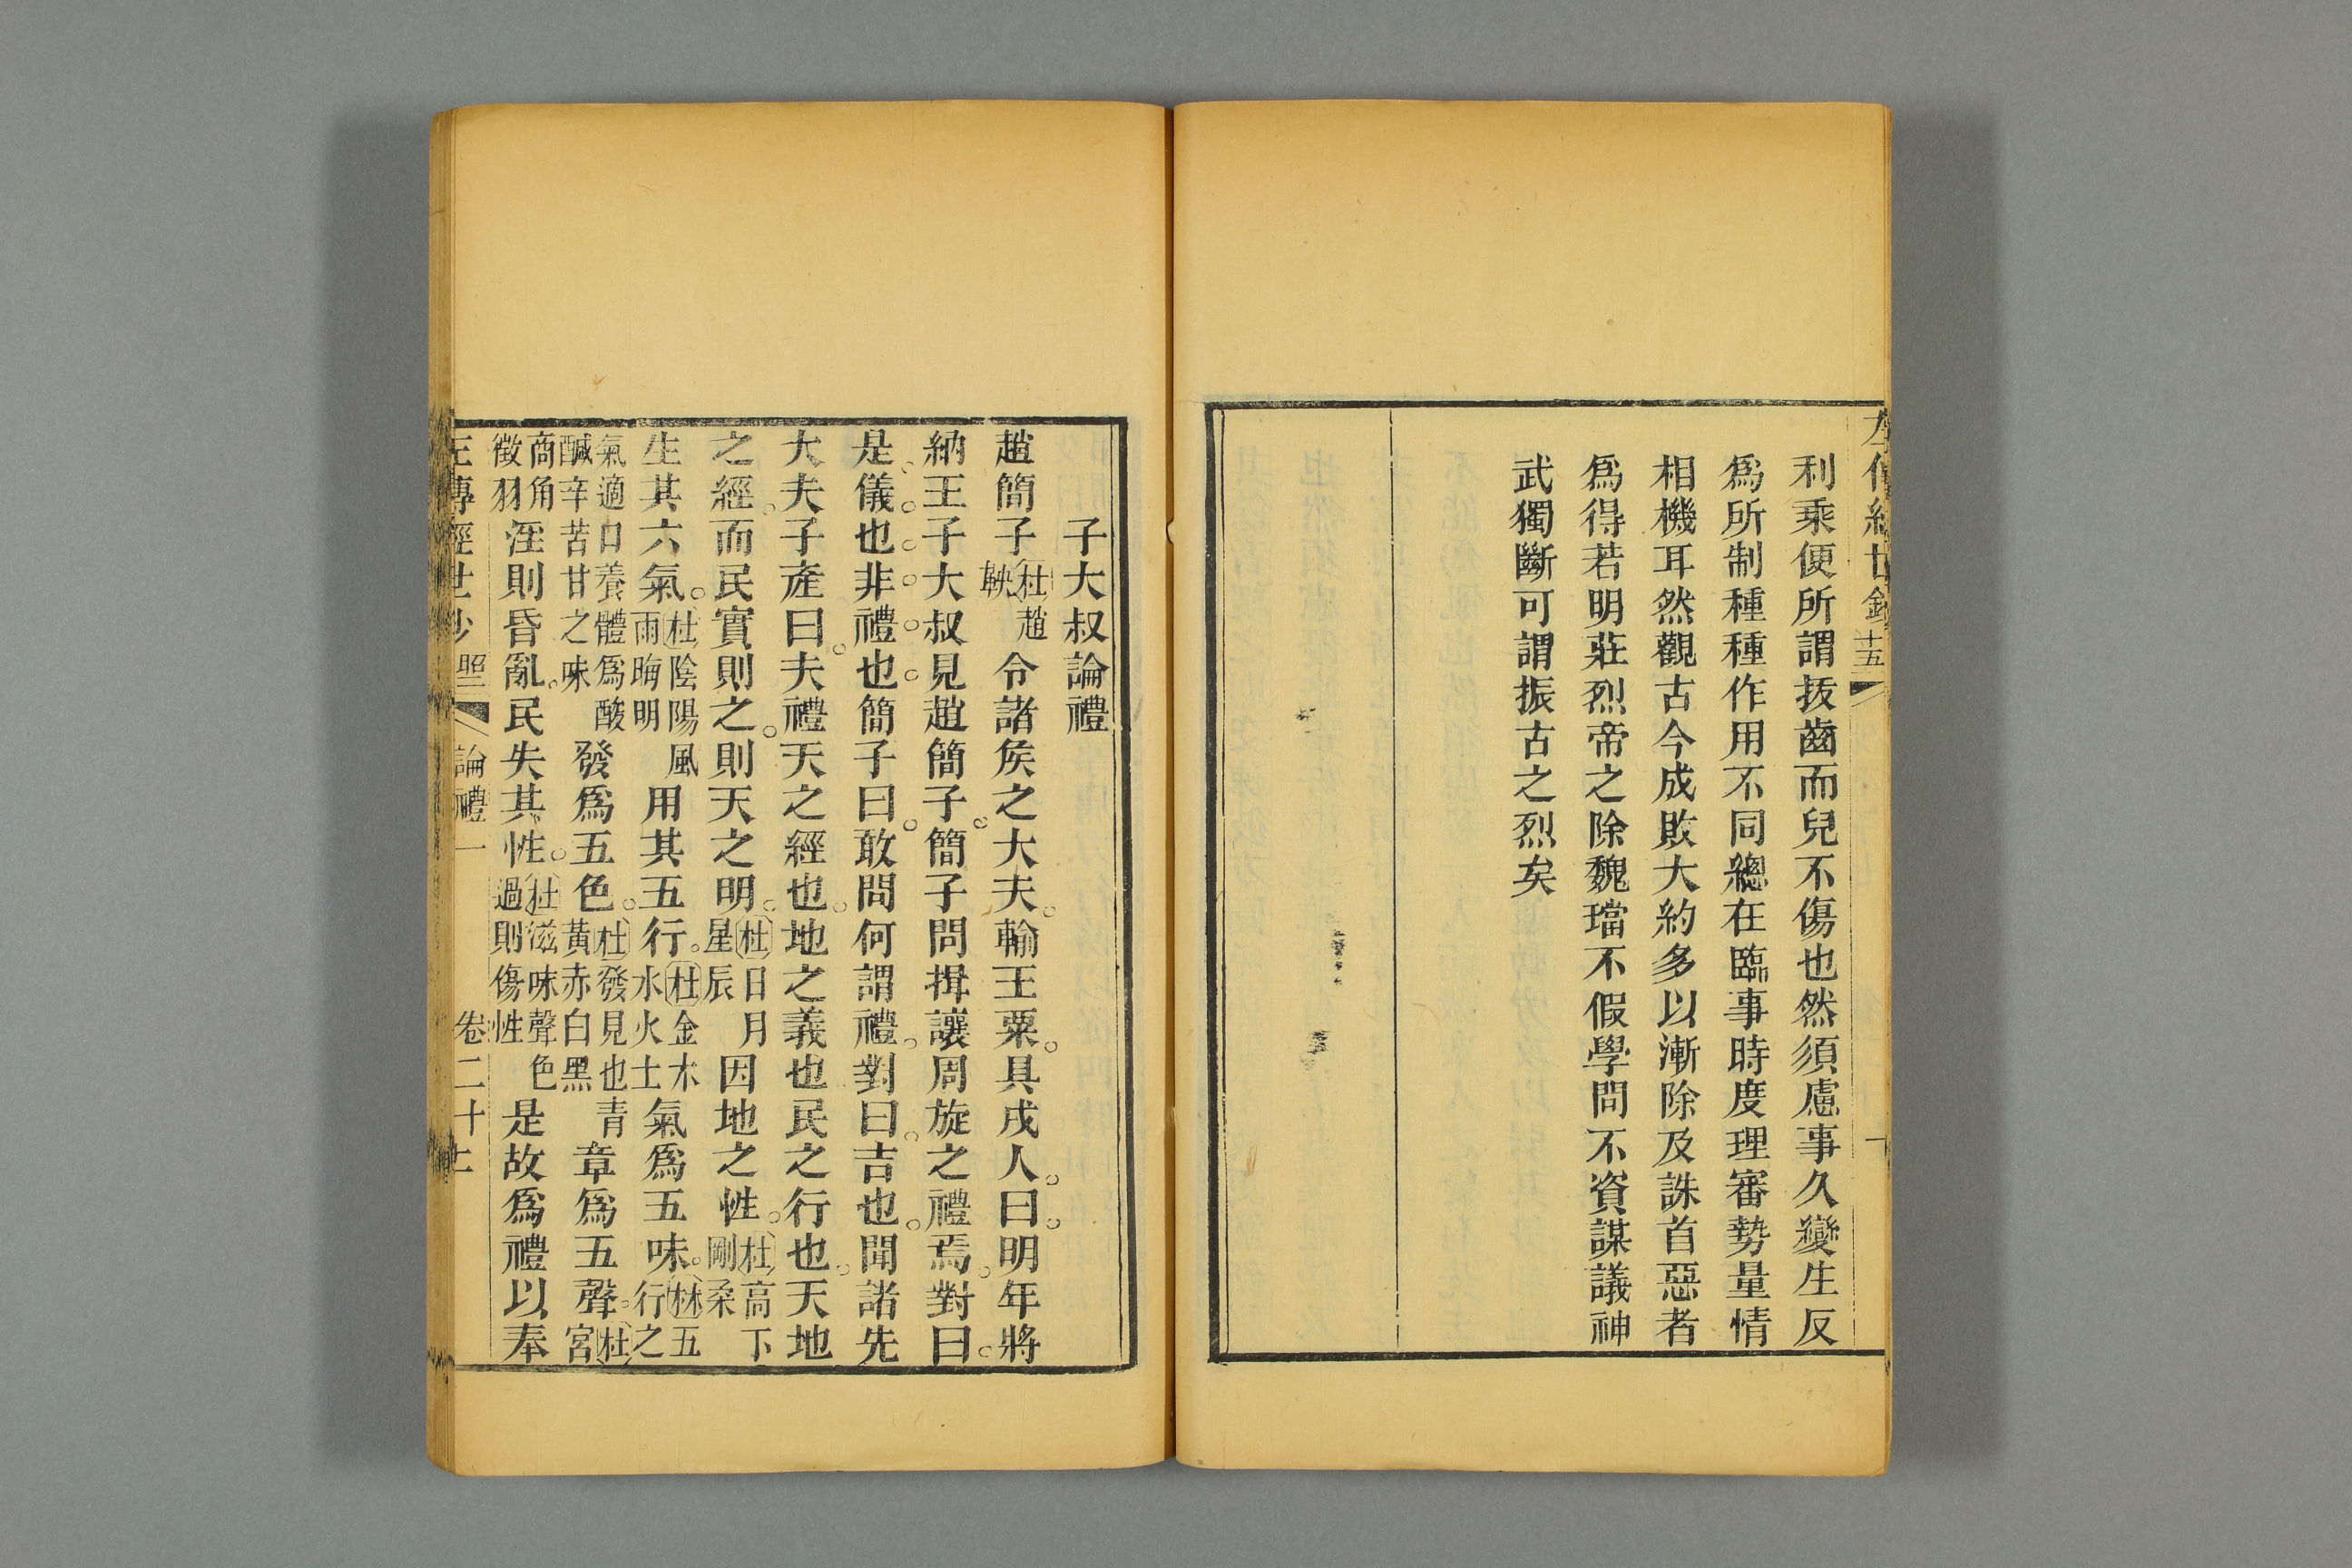 利乘便所謂拔齒而兒不傷也然須慮事久變生反
爲所制種種作用不同總在臨事時度理審勢量情
相機耳然觀古今成敗大約多以漸除及誅首惡者
爲得若明莊烈帝之除魏璫不假學問不資謀議神
武獨斷可謂振古之烈矣
子大叔論禮
趙簡子杜趙鞅令諸侯之大夫輸王粟具戍人曰明年將
納王子大叔見趙簡子簡子問揖讓周旋之禮焉對曰
是儀也非禮也簡子曰敢問何謂禮對曰吉也聞諸先
大夫子產曰夫禮天之經也地之義也民之行也天地
之經而民實則之則天之明杜日月星辰因地之性杜高下剛柔
生其六氣杜陰陽風雨晦明用其五行杜金木水火土氣爲五味林五行之
氣適口養體爲酸鹹辛苦甘之味發爲五色杜發見也青黃赤白黑章爲五聲杜宮
商角徵羽淫則昏亂民失其性杜滋味聲色過則傷性是故爲禮以奉
左傳經世鈔 昭二 論禮一 卷二十